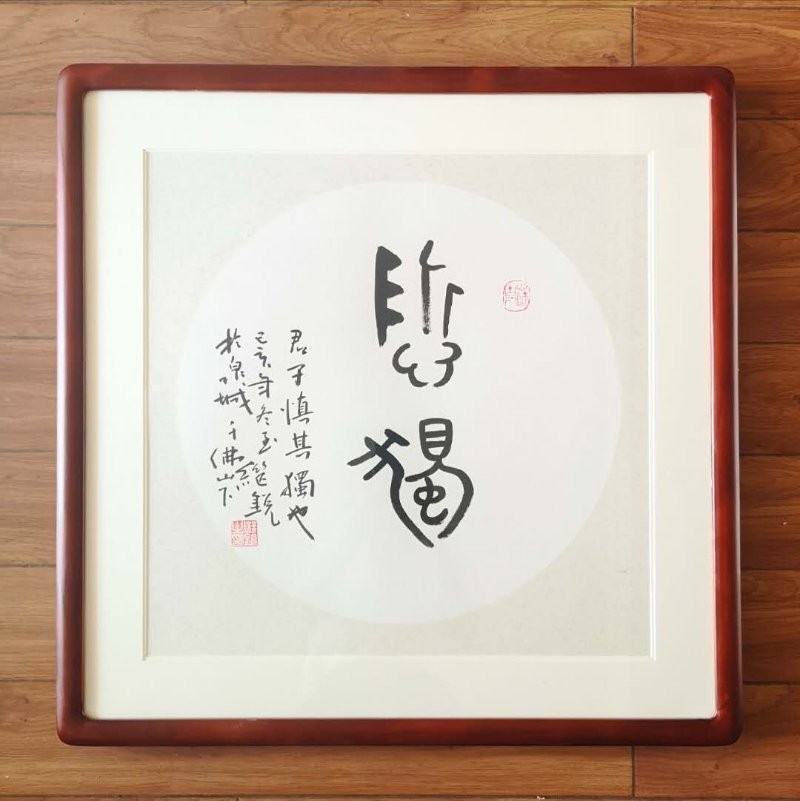 慎獨
君子慎其獨也
己亥年冬
於泉城千佛山下